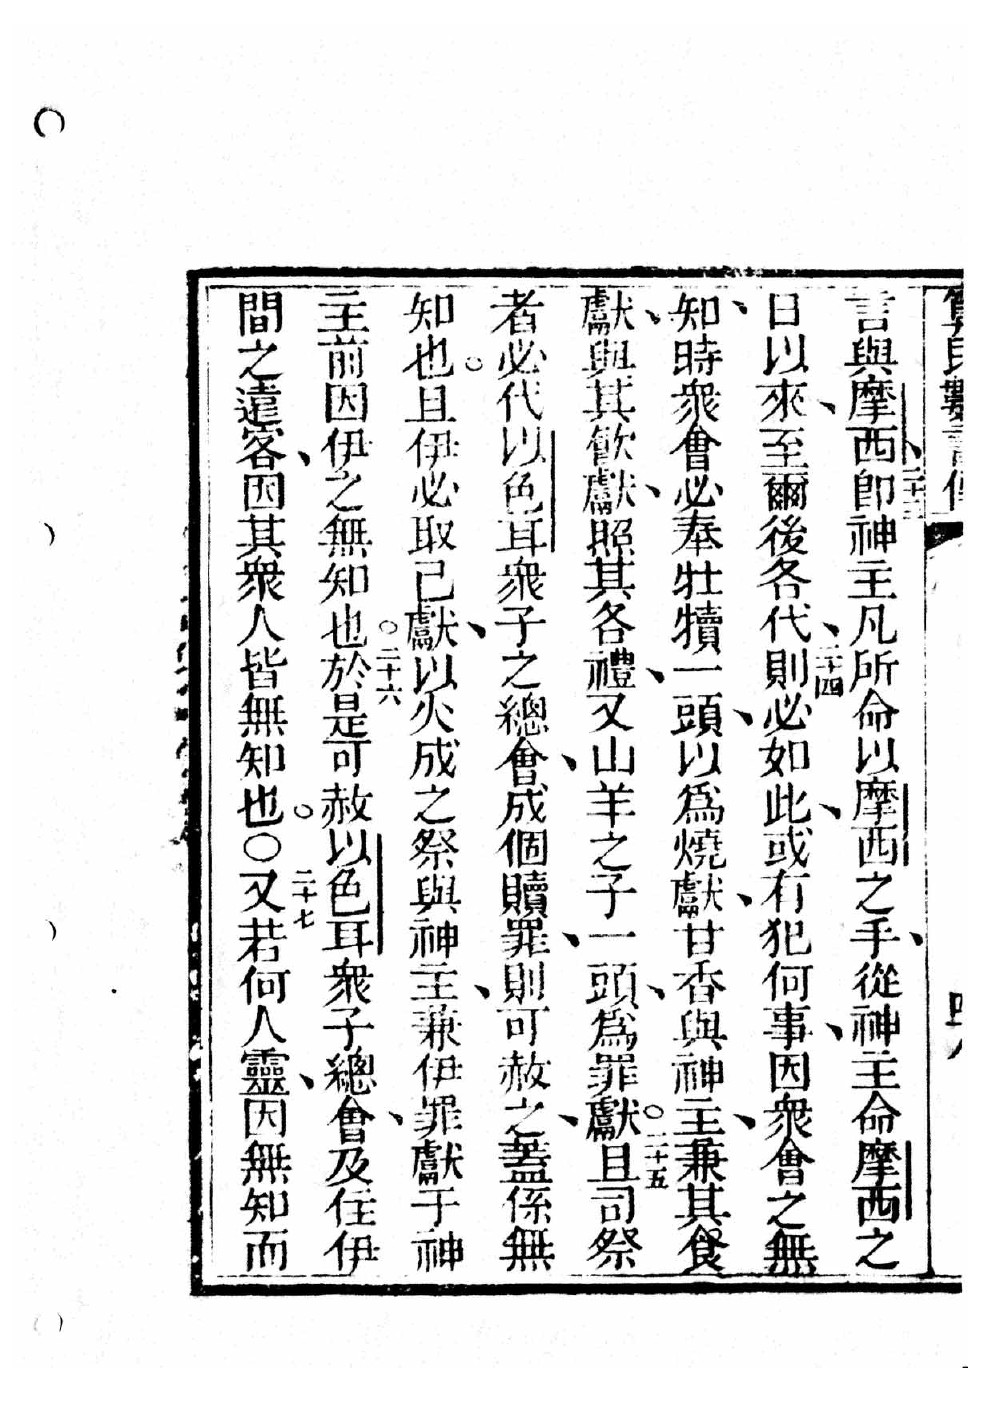 言與摩西、二十三即神主凡所命以摩西之手、從神主命摩西之
日以來、至爾後各代、二十四則必如此、或有犯何事、因衆會之無
知、時衆會必奉牡犢一頭、以爲燒獻、甘香與神主、兼其食
獻、與其飲獻、照其各禮、又山羊之子一頭、爲罪獻。二十五且司祭
者必代以色耳衆子之總會、成個贖罪、則可赦之、蓋係無
知也。且伊必取己獻、以火成之祭與神主、兼伊罪獻于神
主前因伊之無知也。二十六於是可赦以色耳衆子總會、及住伊
間之遠客、因其衆人皆無知也。○二十七又若何人靈、因無知而